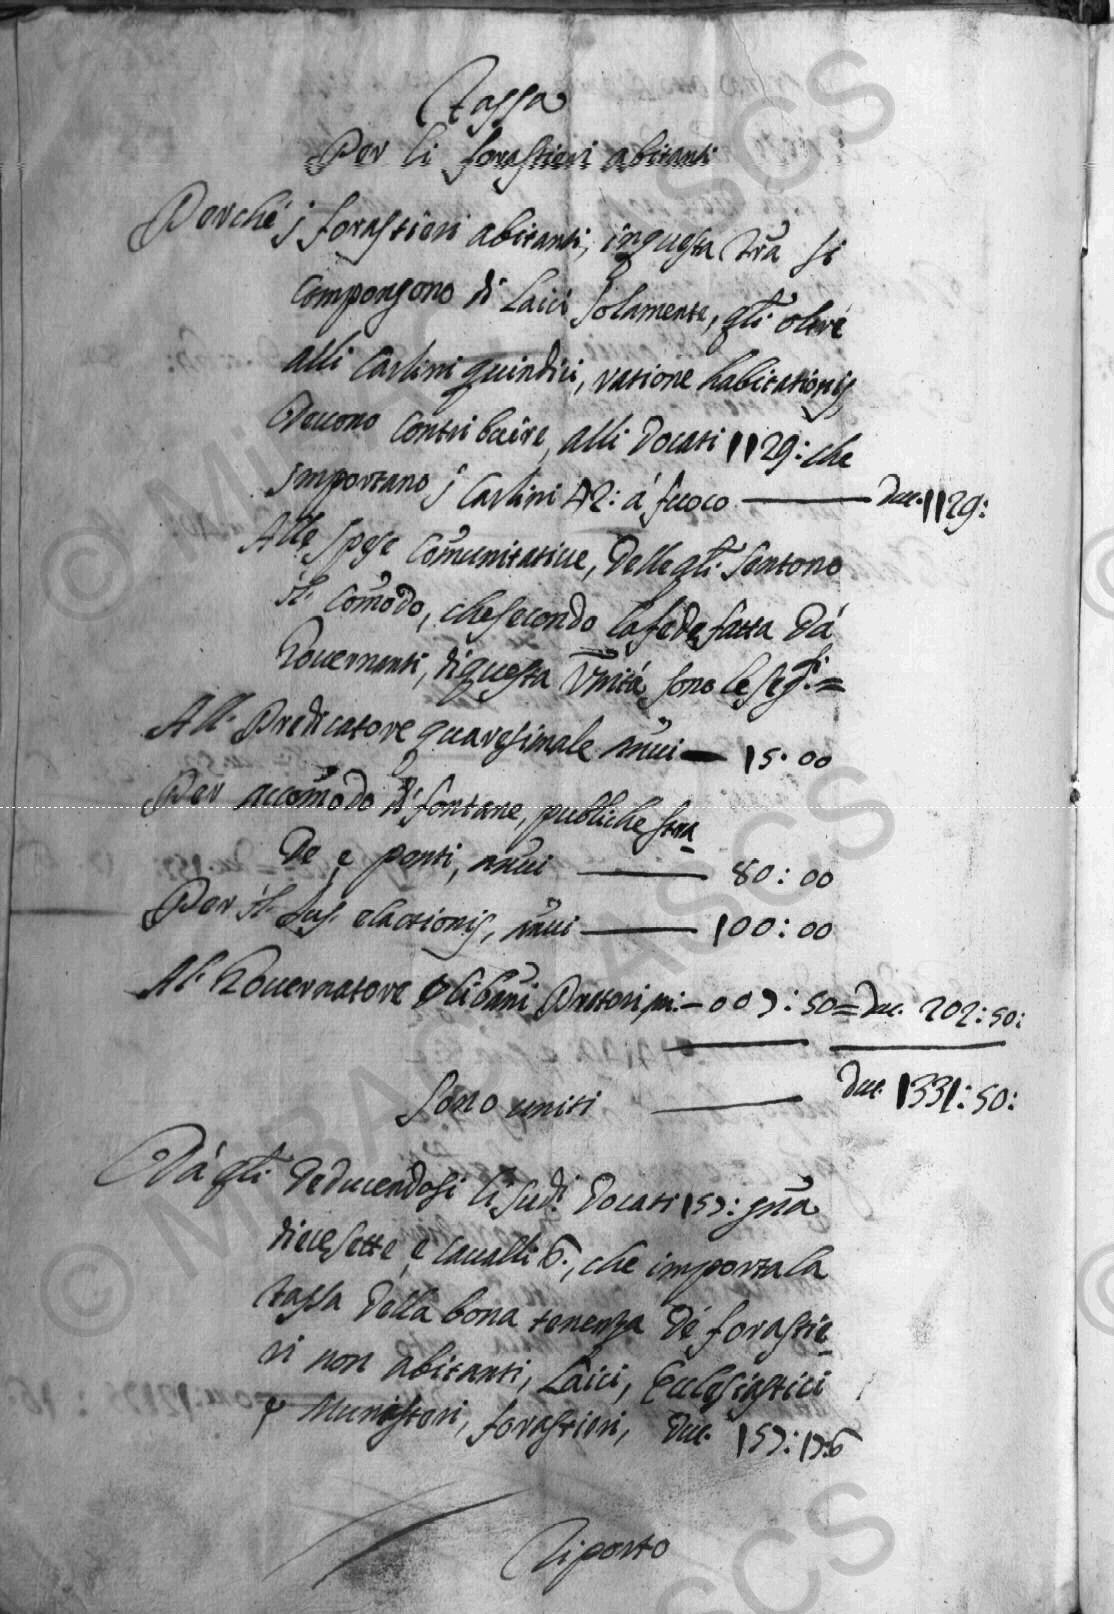 Tassa
Per li forastieri abitanti
Perché j forastieri abitanti, in questa Trã si
Compongono di Laici solamente, qli oltré
alli Carlini quindici, ratione habitationis
Devono Contribuire, alli Docati 1129: che
jmportano j Carlini 42: á fuoco ——— Duc. 1129:
Alle spese Comũnitative, Delle qli Sentono
il Comõdo, che secondo la fede fatta Dá
Governanti, di questa Vñitá sono le segti =
All Predicatore quaresimale ãnui — 15.00
Per accomõdo di fontane, publiche stra
De, e ponti, ãnui ——— 80:00
Per il Jus elactionis, ãnui ——— 100:00
Al Governatore Pretori — 007:50 = Duc. 202:50:
Sono uniti ——— Duc. 1331:50:
Dá qli Deducendosi li sudi Docati 157: gñâ
diecesette, e Cavalli 6., che importa la
tassa Della bona tenenza De forastie
ri non abitanti, Laici, Ecclesiastici
e Munisteri, forastieri, Duc. 157:17:6
Riporto
© MiBAC ASCS
© MiBAC ASCS
ASCS